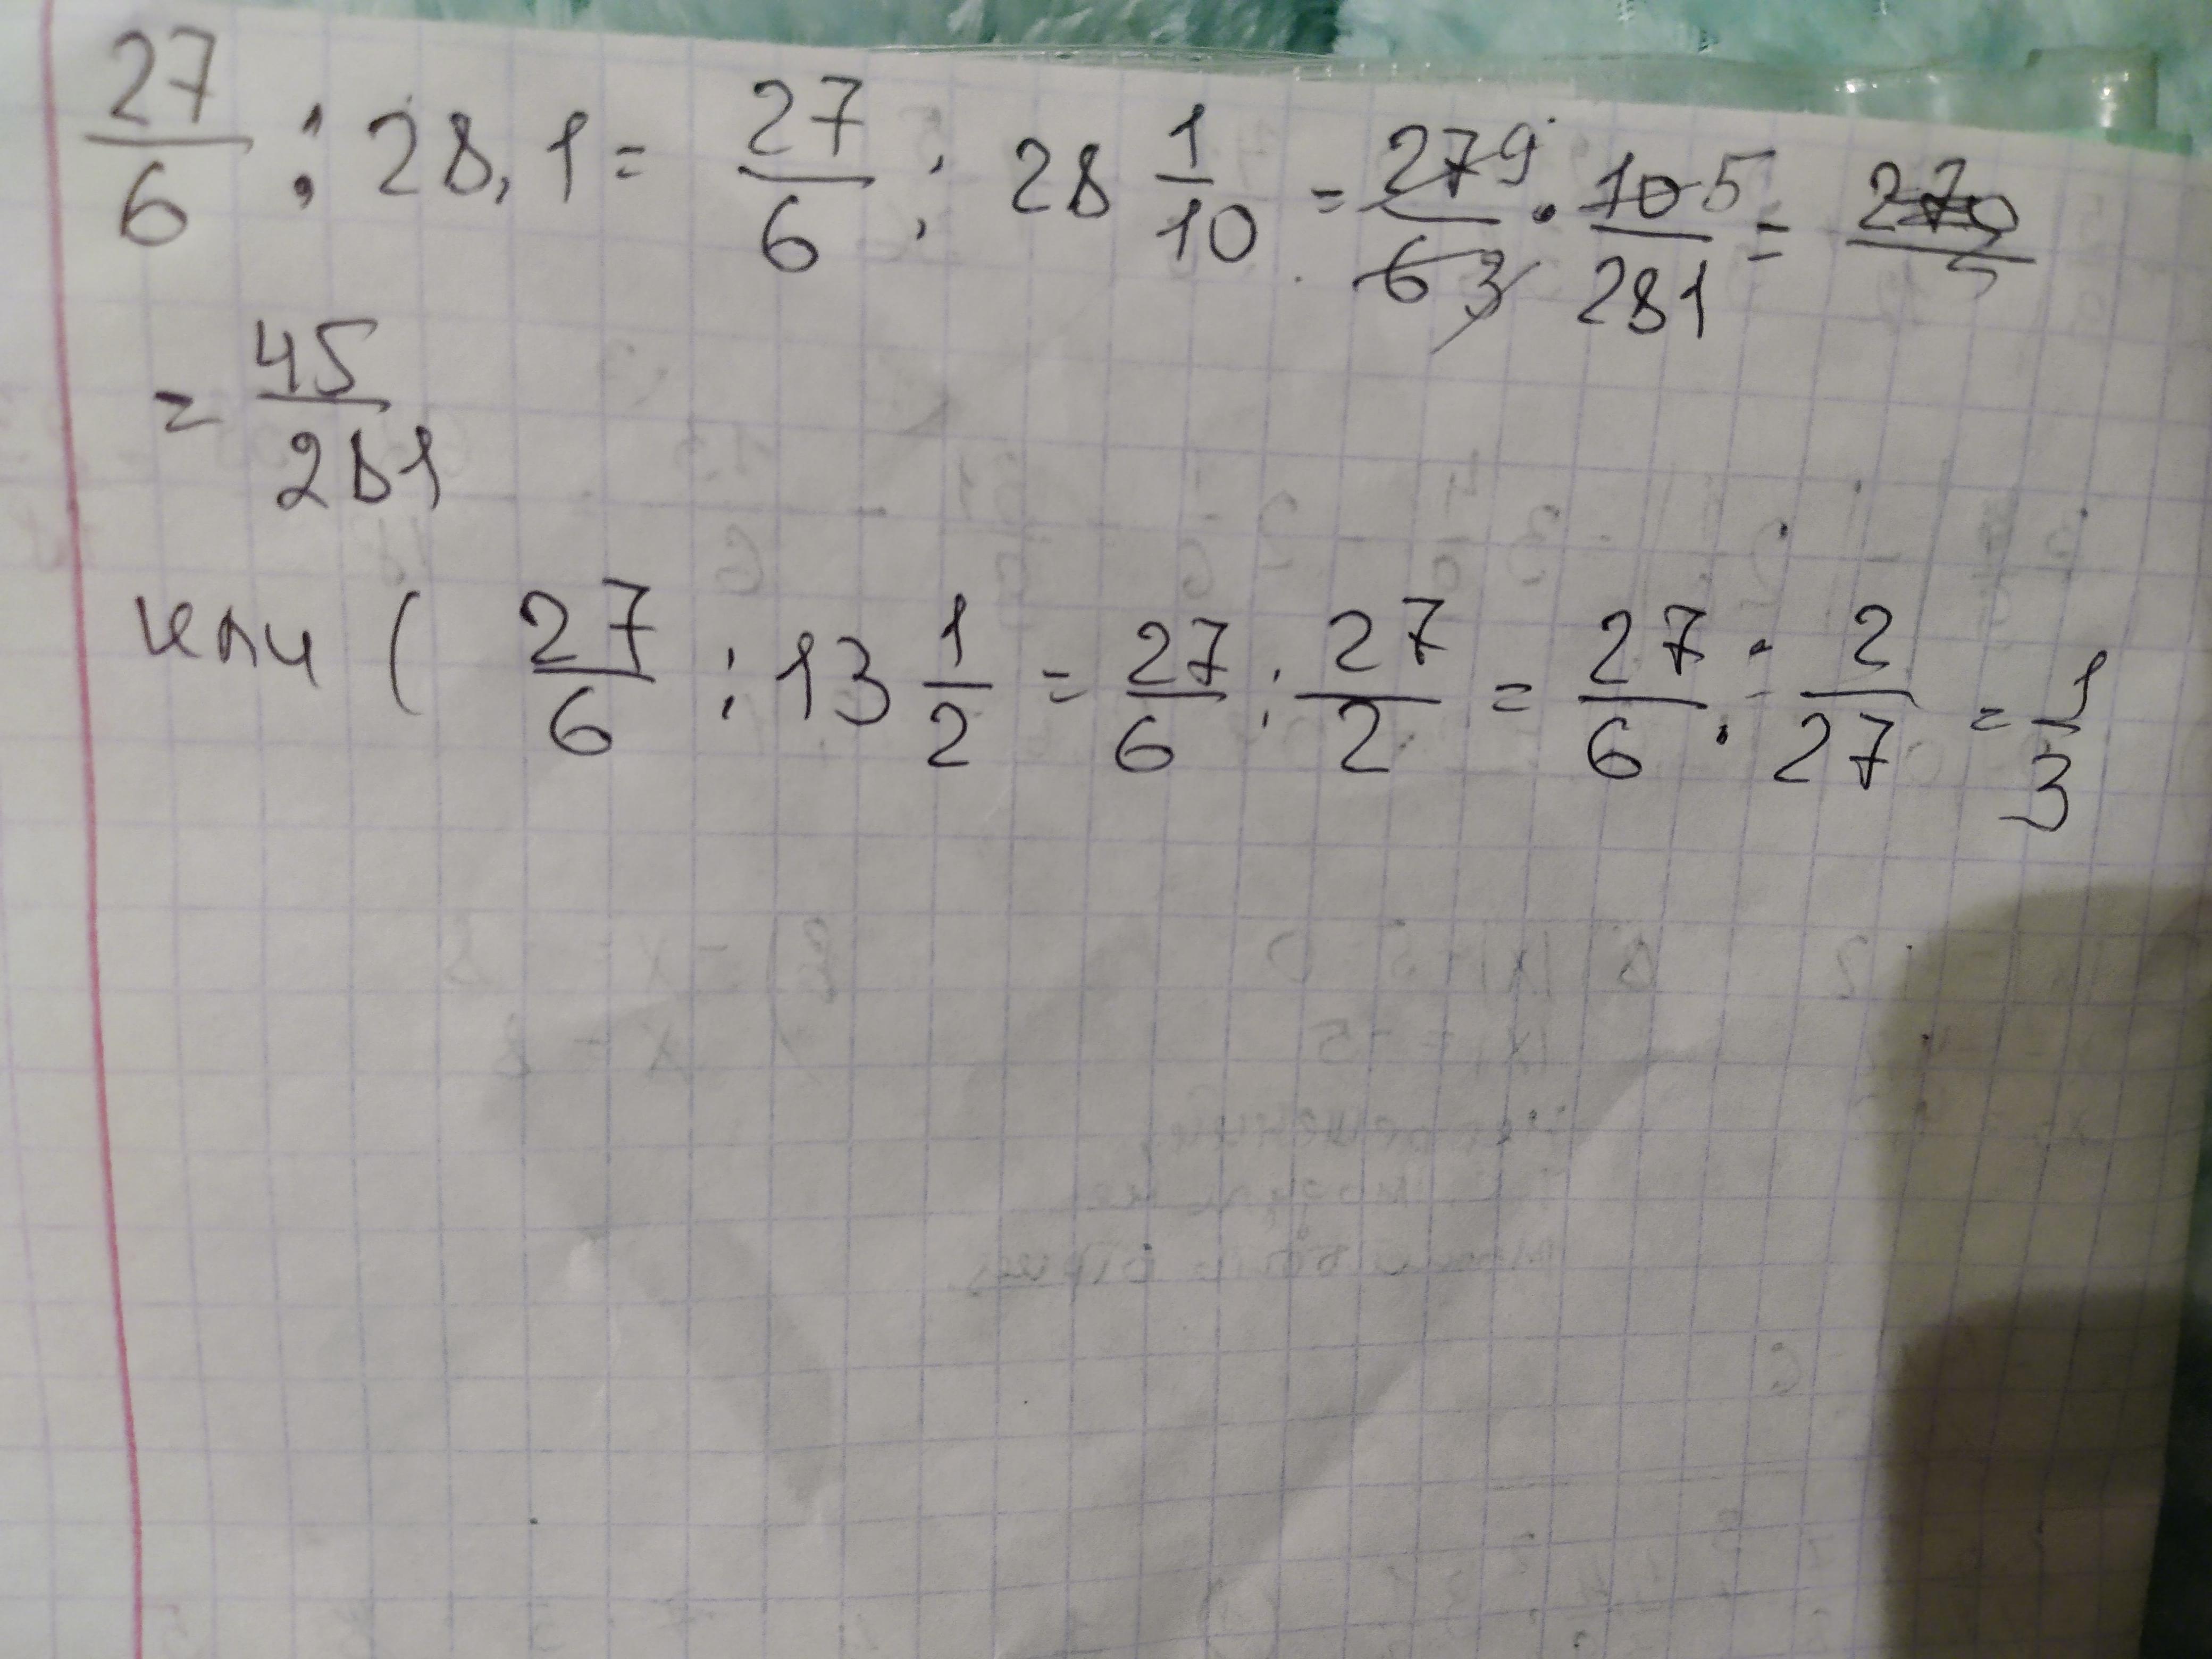 27/6 : 28,1 = 27/6 : 28 1/10 = 27 9/6 3 · 10 5/281 =
= 45/281
или ( 27/6 : 13 1/2 = 27/6 : 27/2 = 27/6 · 2/27 = 1/3